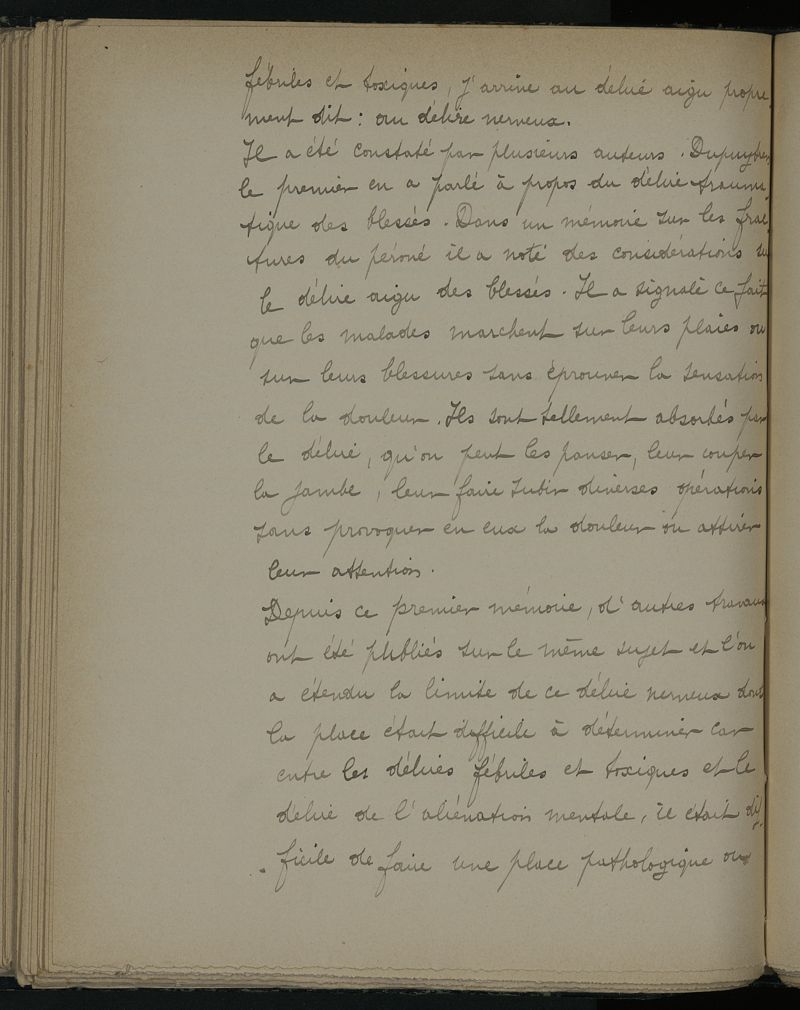 fébriles et toxiques, j'arrive au délire aigu propre-
ment dit : au délire nerveux.
Il a été constaté par plusieurs auteurs. Dupuytren
le premier en a parlé à propos du délire trauma
tique des blessés. Dans un mémoire sur les frac
tures du péroné il a noté des considérations su
le délire aigu des blessés. Il a signalé ce fait
que les malades marchent sur leurs plaies ou
sur leurs blessures sans éprouver la sensation
de la douleur. Ils sont tellement absorbés par
le délire, qu'on peut les panser, leur couper
la jambe, leur faire subir diverses opérations
sans provoquer en eux la douleur ou attirer
leur attention.
Depuis ce premier mémoire, d'autres travaux
ont été publiés sur le même sujet et l'on
a étendu la limite de ce délire nerveux dont
la place était difficile à déterminer car
entre les délires fébriles et toxiques et le
délire de l'aliénation mentale, il était dif-
ficile de faire une place pathologique ou